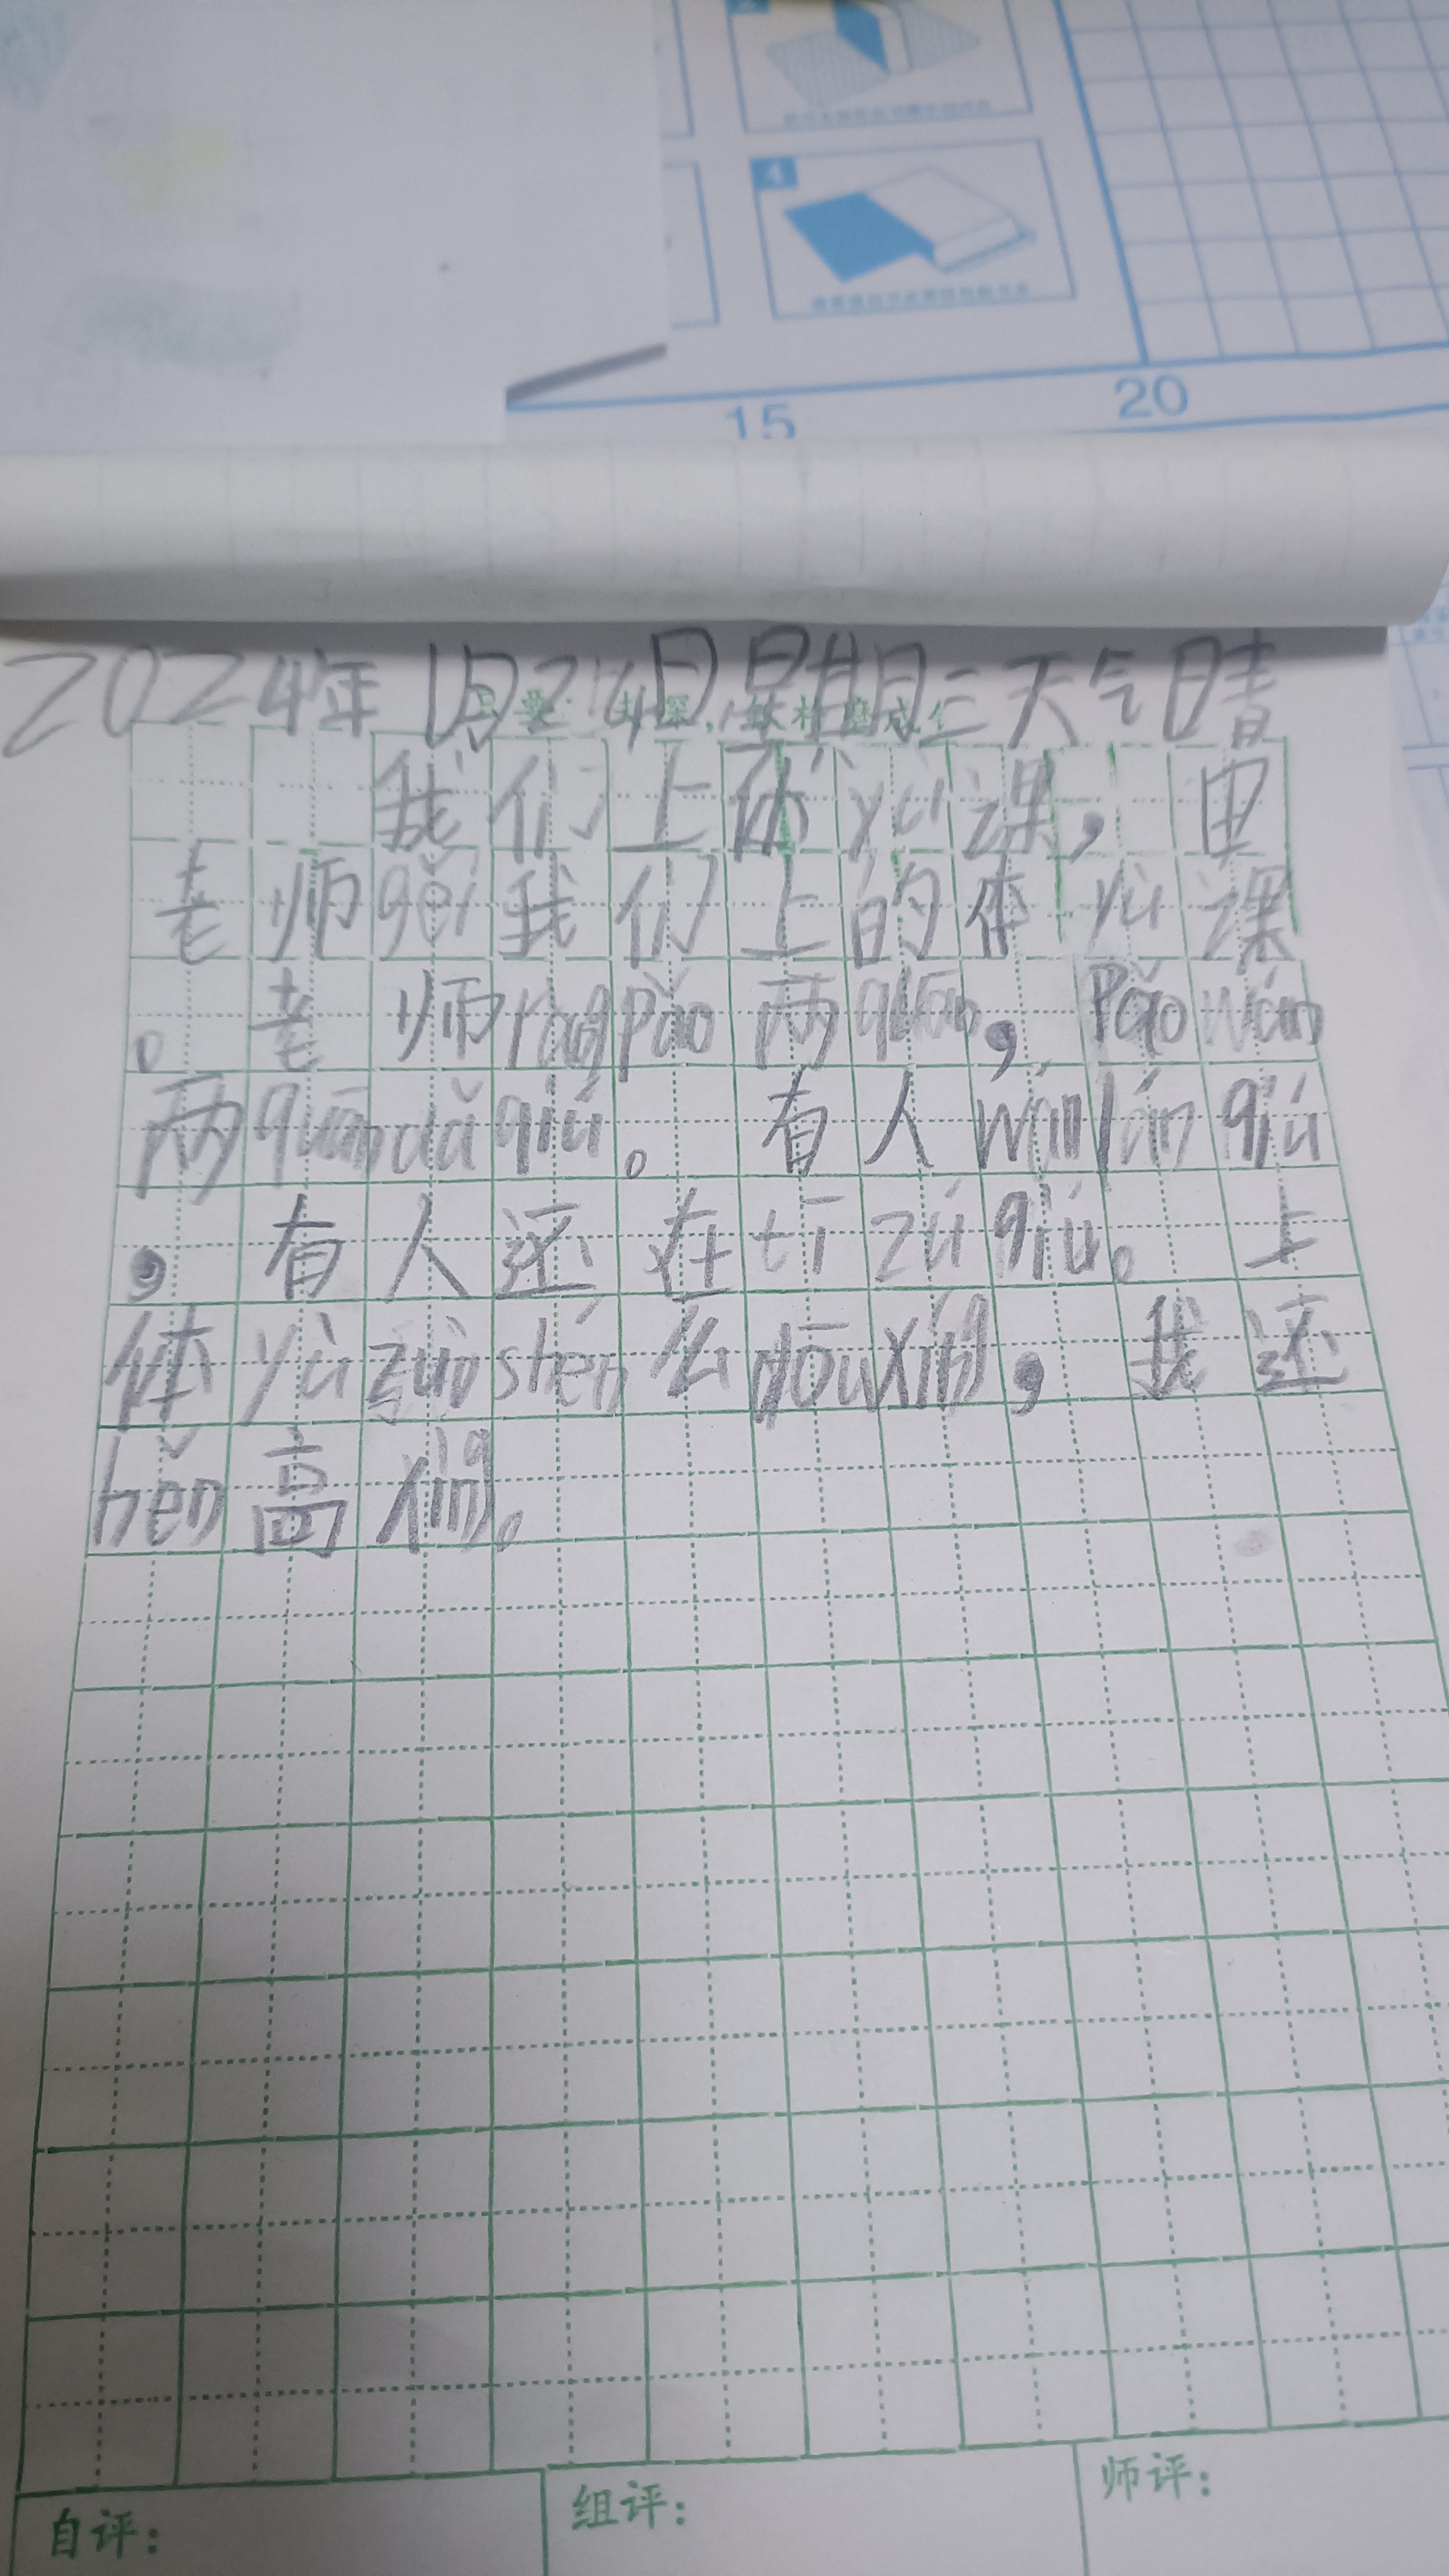 4
15
20
2024年1月24日星期三天气晴
我们上体yù课，电
老师gěi我们上的体yù课
。老师ràngpǎo两quān，Pǎowán
两quāndǎqiú。有人wánlánqiú
，有人还在tīzúqiú。上
体yùzuòshén么dōuxíng，我还
hěn高xìng。
自评：
组评：
师评：